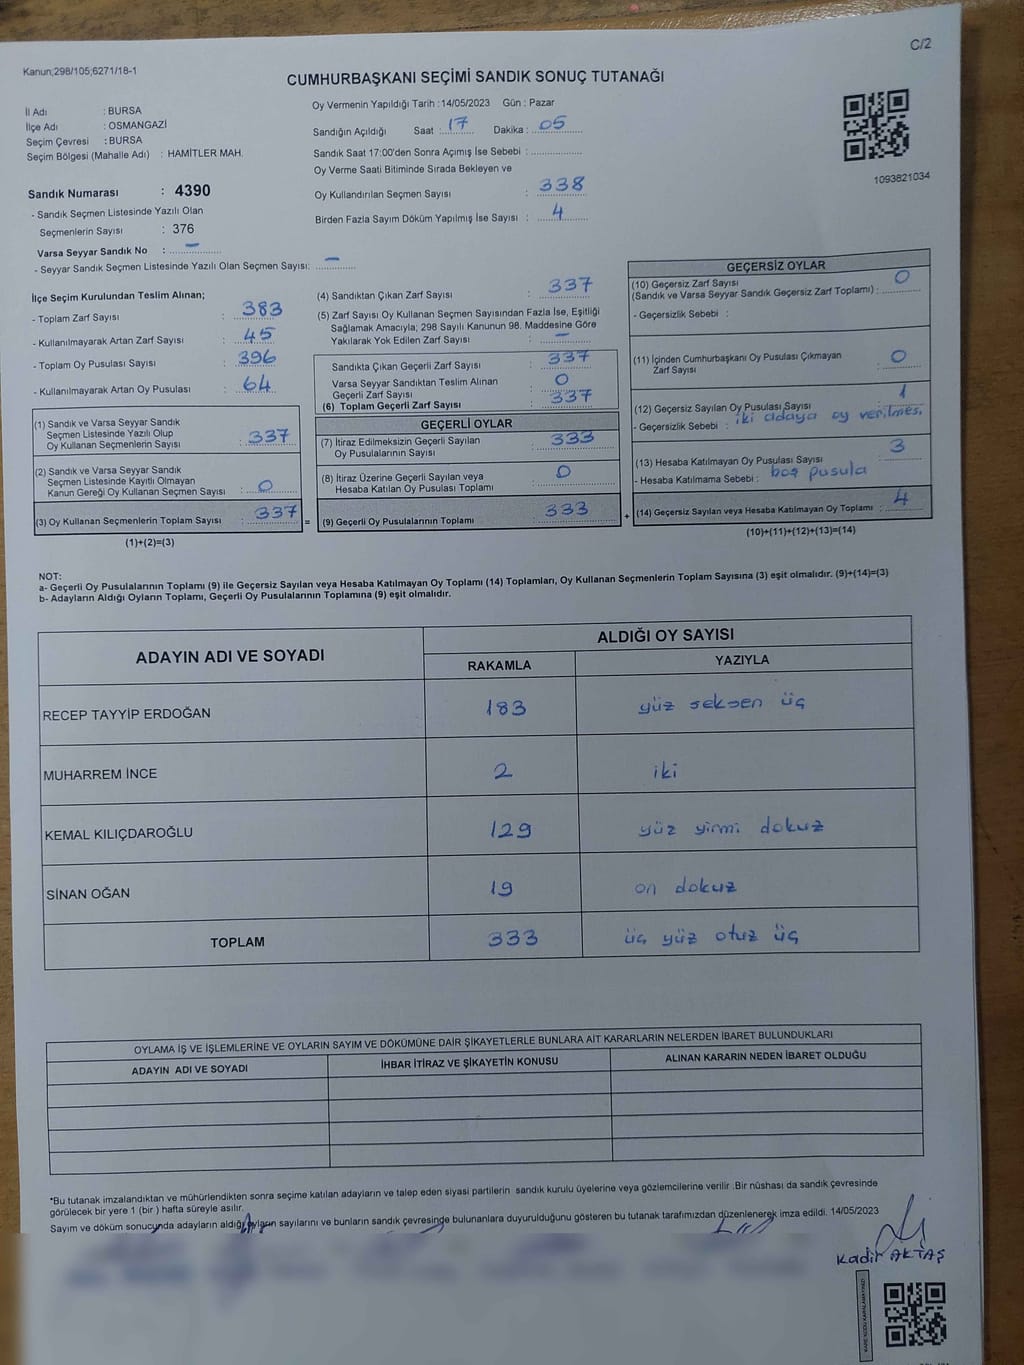 C/2
Kanun;298/105;6271/18-1
CUMHURBAŞKANI SEÇİMİ SANDIK SONUÇ TUTANAĞI
İl Adı : BURSA
İlçe Adı : OSMANGAZİ
Seçim Çevresi : BURSA
Seçim Bölgesi (Mahalle Adı) : HAMİTLER MAH.
Oy Vermenin Yapıldığı Tarih :14/05/2023 Gün : Pazar
Sandığın Açıldığı Saat : 17 Dakika : 05
Sandık Saat 17:00'den Sonra Açımış İse Sebebi :
Oy Verme Saati Bitiminde Sırada Bekleyen ve
Oy Kullandırılan Seçmen Sayısı : 338
Birden Fazla Sayım Döküm Yapılmış İse Sayısı : 4
1093821034
Sandık Numarası : 4390
- Sandık Seçmen Listesinde Yazılı Olan
Seçmenlerin Sayısı : 376
Varsa Seyyar Sandık No : –
- Seyyar Sandık Seçmen Listesinde Yazılı Olan Seçmen Sayısı: –
İlçe Seçim Kurulundan Teslim Alınan;
- Toplam Zarf Sayısı : 383
- Kullanılmayarak Artan Zarf Sayısı : 45
- Toplam Oy Pusulası Sayısı : 396
- Kullanılmayarak Artan Oy Pusulası : 64
(1) Sandık ve Varsa Seyyar Sandık
Seçmen Listesinde Yazılı Olup
Oy Kullanan Seçmenlerin Sayısı : 337
(2) Sandık ve Varsa Seyyar Sandık
Seçmen Listesinde Kayıtlı Olmayan
Kanun Gereği Oy Kullanan Seçmen Sayısı : 0
(3) Oy Kullanan Seçmenlerin Toplam Sayısı : 337
(1)+(2)=(3)
=
(4) Sandıktan Çıkan Zarf Sayısı : 337
(5) Zarf Sayısı Oy Kullanan Seçmen Sayısından Fazla İse, Eşitliği
Sağlamak Amacıyla; 298 Sayılı Kanunun 98. Maddesine Göre
Yakılarak Yok Edilen Zarf Sayısı : –
Sandıkta Çıkan Geçerli Zarf Sayısı : 337
Varsa Seyyar Sandıktan Teslim Alınan
Geçerli Zarf Sayısı : 0
(6) Toplam Geçerli Zarf Sayısı : 337
GEÇERLİ OYLAR
(7) İtiraz Edilmeksizin Geçerli Sayılan
Oy Pusulalarının Sayısı : 333
(8) İtiraz Üzerine Geçerli Sayılan veya
Hesaba Katılan Oy Pusulası Toplamı : 0
(9) Geçerli Oy Pusulalarının Toplamı : 333
+
GEÇERSİZ OYLAR
(10) Geçersiz Zarf Sayısı
(Sandık ve Varsa Seyyar Sandık Geçersiz Zarf Toplamı) : 0
- Geçersizlik Sebebi :
(11) İçinden Cumhurbaşkanı Oy Pusulası Çıkmayan
Zarf Sayısı : 0
(12) Geçersiz Sayılan Oy Pusulası Sayısı : 1
- Geçersizlik Sebebi : iki adaya oy verilmesi
(13) Hesaba Katılmayan Oy Pusulası Sayısı : 3
- Hesaba Katılmama Sebebi : boş pusula
(14) Geçersiz Sayılan veya Hesaba Katılmayan Oy Toplamı : 4
(10)+(11)+(12)+(13)=(14)
NOT:
a- Geçerli Oy Pusulalarının Toplamı (9) ile Geçersiz Sayılan veya Hesaba Katılmayan Oy Toplamı (14) Toplamları, Oy Kullanan Seçmenlerin Toplam Sayısına (3) eşit olmalıdır. (9)+(14)=(3)
b- Adayların Aldığı Oyların Toplamı, Geçerli Oy Pusulalarının Toplamına (9) eşit olmalıdır.
ADAYIN ADI VE SOYADI
ALDIĞI OY SAYISI
RAKAMLA YAZIYLA
RECEP TAYYİP ERDOĞAN 183 yüz seksen üç
MUHARREM İNCE 2 iki
KEMAL KILIÇDAROĞLU 129 yüz yirmi dokuz
SİNAN OĞAN 19 on dokuz
TOPLAM 333 üç yüz otuz üç
OYLAMA İŞ VE İŞLEMLERİNE VE OYLARIN SAYIM VE DÖKÜMÜNE DAİR ŞİKAYETLERLE BUNLARA AİT KARARLARIN NELERDEN İBARET BULUNDUKLARI
ADAYIN ADI VE SOYADI İHBAR İTİRAZ VE ŞİKAYETİN KONUSU ALINAN KARARIN NEDEN İBARET OLDUĞU
*Bu tutanak imzalandıktan ve mühürlendikten sonra seçime katılan adayların ve talep eden siyasi partilerin sandık kurulu üyelerine veya gözlemcilerine verilir .Bir nüshası da sandık çevresinde
görülecek bir yere 1 (bir ) hafta süreyle asılır.
Sayım ve döküm sonucunda adayların aldığı oyların sayılarını ve bunların sandık çevresinde bulunanlara duyurulduğunu gösteren bu tutanak tarafımızdan düzenlenerek imza edildi. 14/05/2023
Kadir AKTAŞ